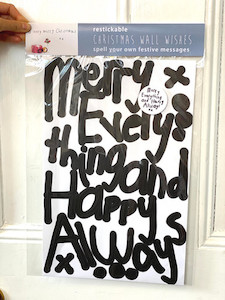 Merry Merry Christmas
restickable
CHRISTMAS WALL WISHES
spell your own festive messages
Merry x
Every
thing and
Happy
Always
x
Merry
Everything
and Happy
Always!